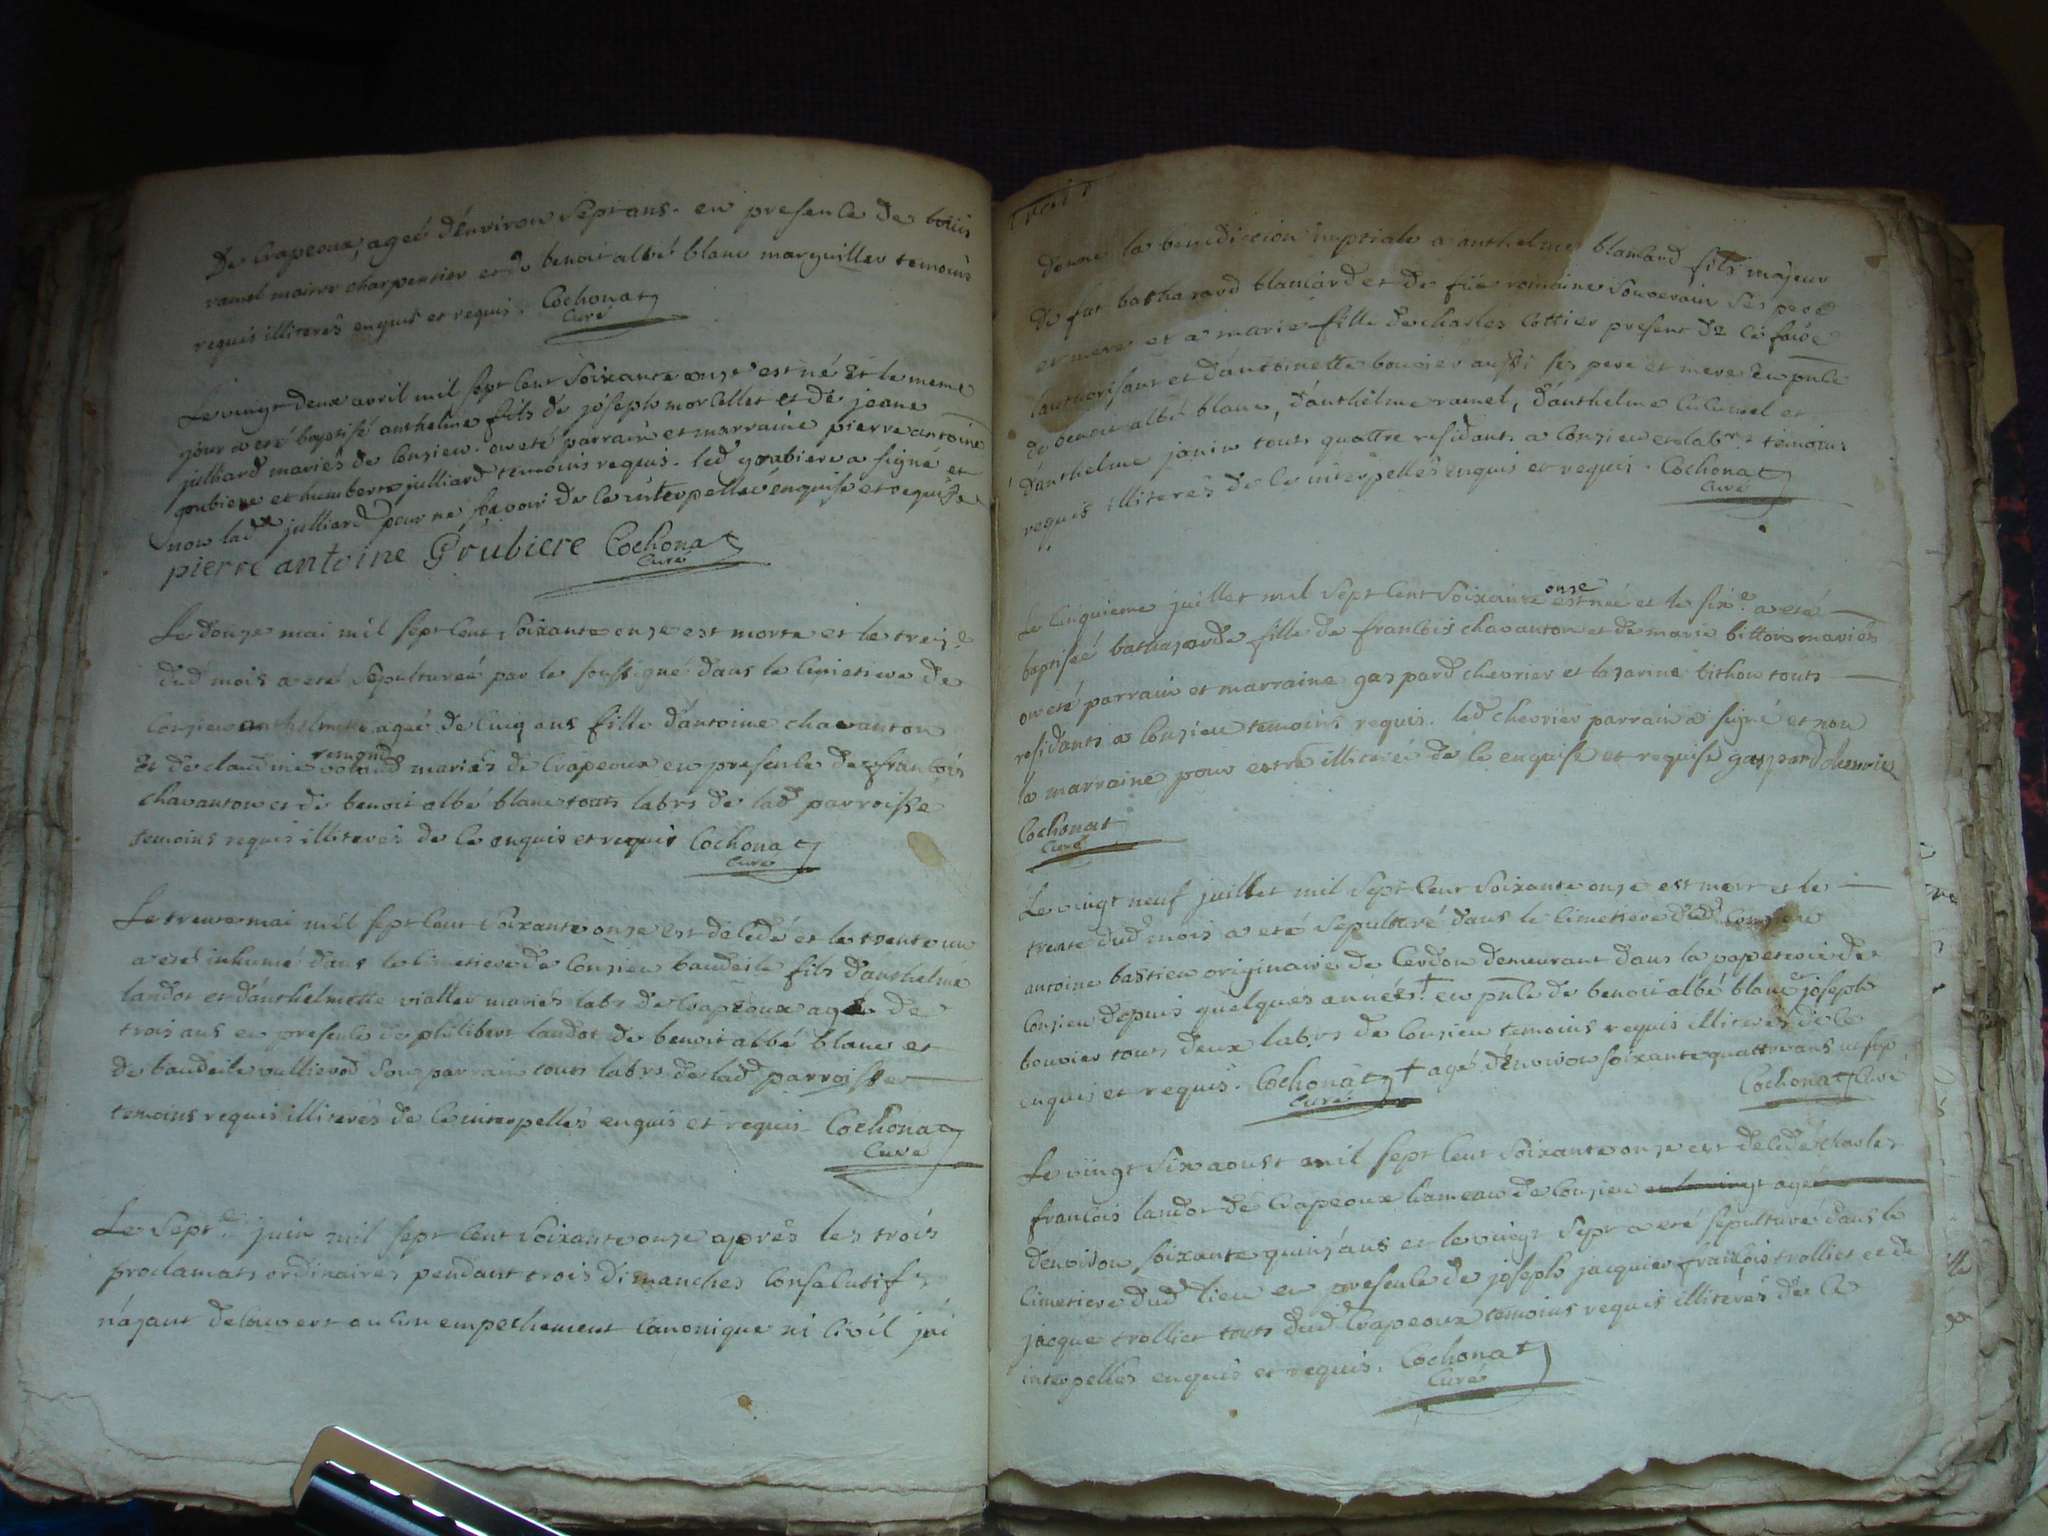 De Crapeoux, ageé d'environ sept ans. en presence de louis
ramel maitre charpentier et de benoit albé blanc marguiller temoins
requis illiterés enquis et requis. Cochonat
Curé
Le vingt deux avril mil sept cent soixante onze est né et le meme
jour a eté baptisé anthelme fils de joseph morcellet et de jeane
julliard mariés de Consieu. ont eté parrain et marraine pierre antoine
grubiere et humberte julliard temoins requis. led grubiere a signé et
non lad julliard pour ne savoir de ce interpellée enquise et requise
pierre antoine Grubiere Cochonat
Curé
Le douze mai mil sept cent soixante onze est morte et le treize
dud mois a eté sepultureé par le soussigné dans le cimetiere de
Consieu anthelmette ageé de cinq ans fille d'antoine chavanton
et de claudine remond mariés de Crapeoux en presence de francois
chavanton et de benoit albé blanc touts labrs de lad parroisse
temoins requis illiterés de ce enquis et requis Cochonat
Curé
Le trente mai mil sept cent soixante onze est decedé et le trente un
a eté inhumé dans le cimetiere de Consieu baudeile fils d'anthelme
landot et d'anthelmette viallet mariés labrs de Crapeoux agé de
trois ans en presence de philibert landot de benoit albé blanc et
de baudeile vullierod son parrain touts labrs de lad parroisse
temoins requis illiterés de ce interpellés enquis et requis Cochonat
Curé
Le sept.e juin mil sept cent soixante onze aprés les trois
proclamats ordinaires pendant trois dimanches consecutifs
n'ayant decouvert aucun empechement canonique ni civil j'ai
donné la benediction nuptiale a anthelme blanchard fils majeur
de fut bathazard blanchard et de fûe romaine souverain ses pere
et mere et a marie fille de charles cottier present de ce faire
l'authorisant et d'antoinette bouvier aussi ses pere et mere En pnce
de benoit albé blanc, d'anthelme ramel, d'anthelme et
d'anthelme janin touts quattre residants a Consieu et labrs temoins
requis illiterés de ce interpellés enquis et requis. Cochonat
Curé
Le cinquieme juillet mil sept cent soixante onze est neé et le six.e a eté
baptiseé bathazarde fille de francois chavanton et de marie bitton mariés
ont eté parrain et marraine gaspard chevrier et lazarine bithon touts
residants a Consieu temoins requis. led chevrier parrain a signé et non
la marraine pour estre illitereé de ce enquise et requise gaspard chevrier
Cochonat
Curé
Le vingt neuf juillet mil sept cent soixante onze est mort et le
trente dud mois a eté sepulturé dans le cimetiere dud Consieu
antoine bastien originaire de Cerdon demeurant dans la papeterie de
Consieu depuis quelques années † en pnce de benoit albé blanc et joseph
bouvier touts deux labrs de Consieu temoins requis illiterés de ce
enquis et requis. Cochonat † agé d'environ soixante quattre ans
Curé Cochonat Curé
Le vingt six aoust mil sept cent soixante onze est decedé charles
francois landot de Crapeoux hameau de Consieu agé
d'environ soixante quinz'ans et le vingt sept a eté sepulturé dans le
cimetiere dud lieu en presence de joseph jacquier francois trolliet et de
jacque trolliet touts dud Crapeoux temoins requis illiterés de ce
interpellés enquis et requis. Cochonat
Curé